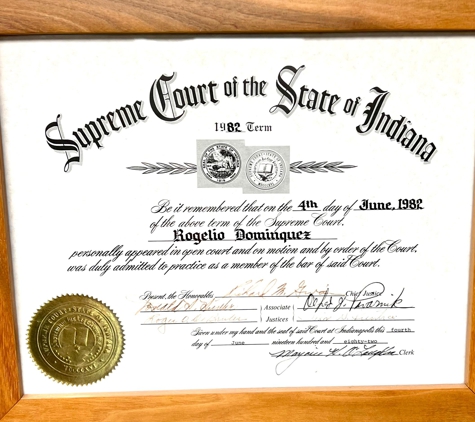 Supreme Court of the State of Indiana
1982 Term
Be it remembered that on the 4th day of June, 1982
of the above term of the Supreme Court,
Rogelio Dominquez
personally appeared in open court and on motion and by order of the Court,
was duly admitted to practice as a member of the bar of said Court.
Present, the Honorables Richard M. Chief Justice
Associate Alfred J. Pivarnik
Roger Justices
Given under my hand and the seal of said Court at Indianapolis this fourth
day of June nineteen hundred and eighty-two
Marjorie H. O'Laughlin Clerk